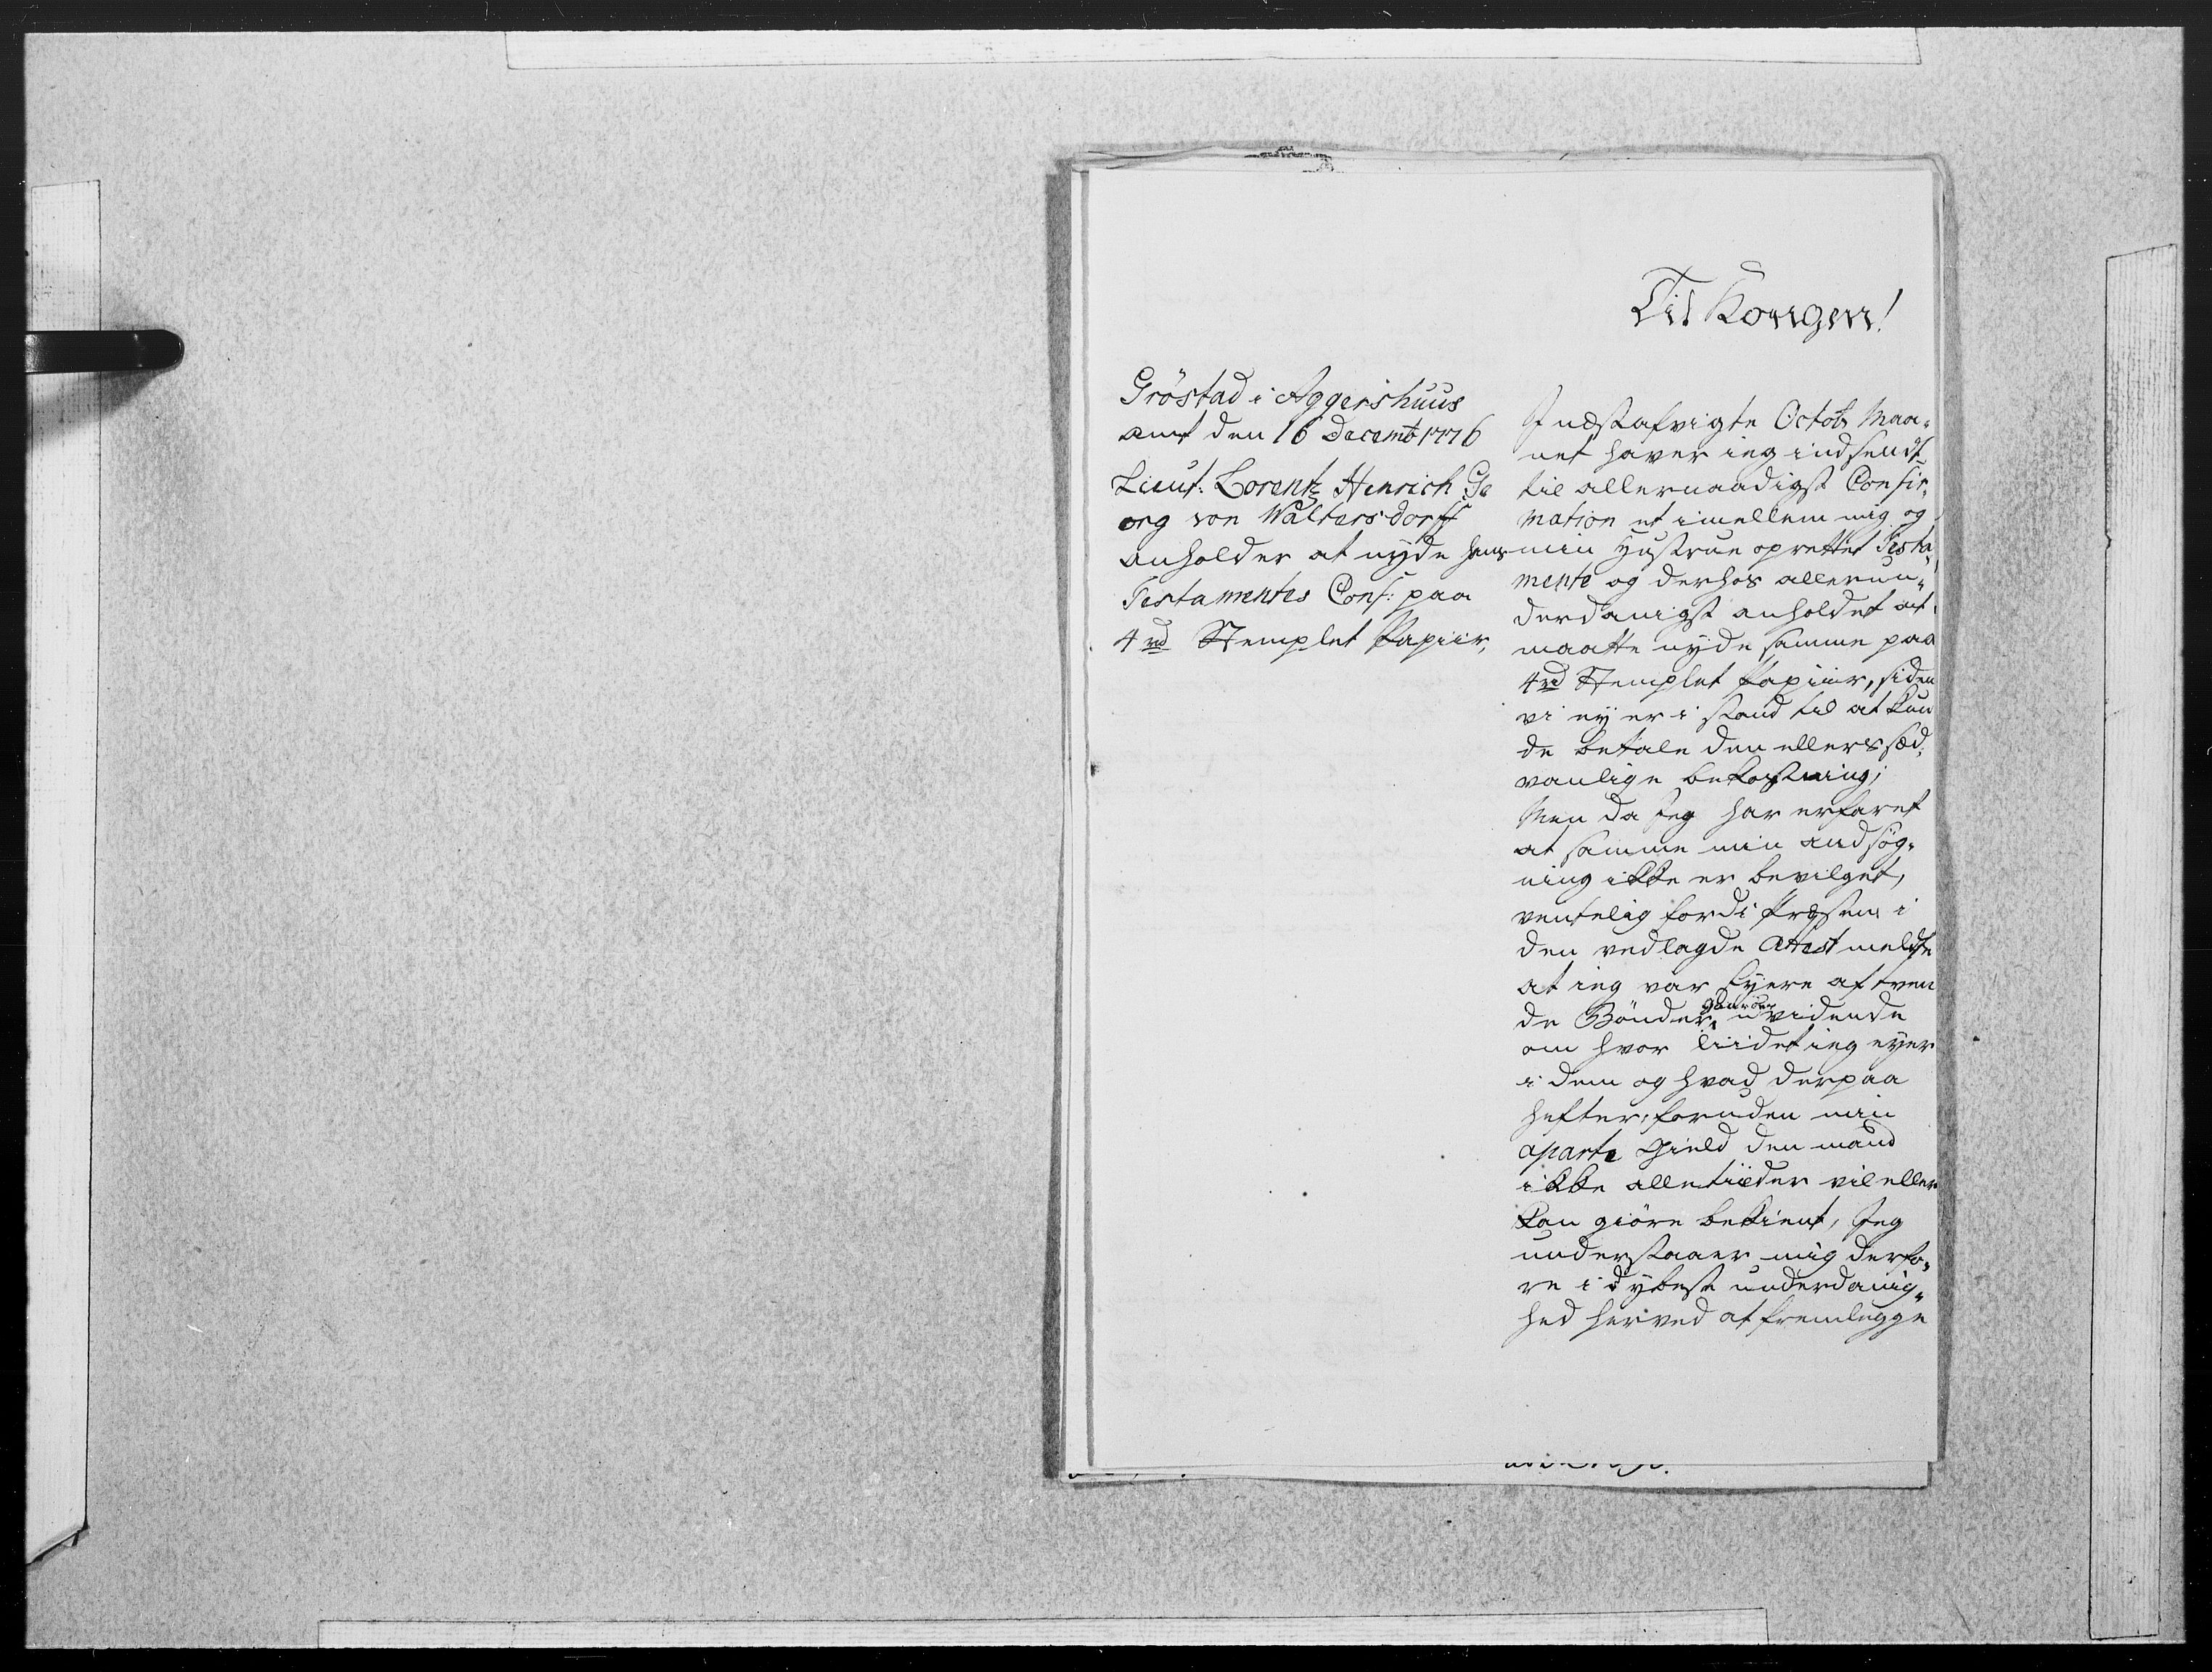 Til Kongen!
Gröstad i Aggershuus
amt den 16 Decembr 1776
Lieut: Lorentz Henrich Ge
org von Waltersdorff
anholder at nyde hans
Testamentes Conf: paa
4 rd Stemplet Papiir,
I næstafvigte Octobr Maa-
net haver ieg indsendt
til allernaadigst Confir-
mation et imellem mig og
min Hustrue oprettet Testa-
mente og derhos allerun-
derdanigst anholdet at
maatte nyde samme paa
4 rd Stemplet Papiir, siden
vi ey er i stand til at kun
de betale den ellers sæd-
vanlige bekostning;
Men da Jeg har erfaret
at samme min andsøg-
ning ikke er bevilget,
ventelig fordi Præsten i
den vedlagde Attest meldte
at ieg var Eyere af tven
de Bönder gaarder uvidende
om hvor liidet ieg eyer
i dem og hvad derpaa
hefter, foruden min
aparte Gield den mand
ikke alletiider vil eller
kan giöre bekient, Jeg
understaaer mig derfo-
re i dybeste underdanig-
hed herved at fremlegge